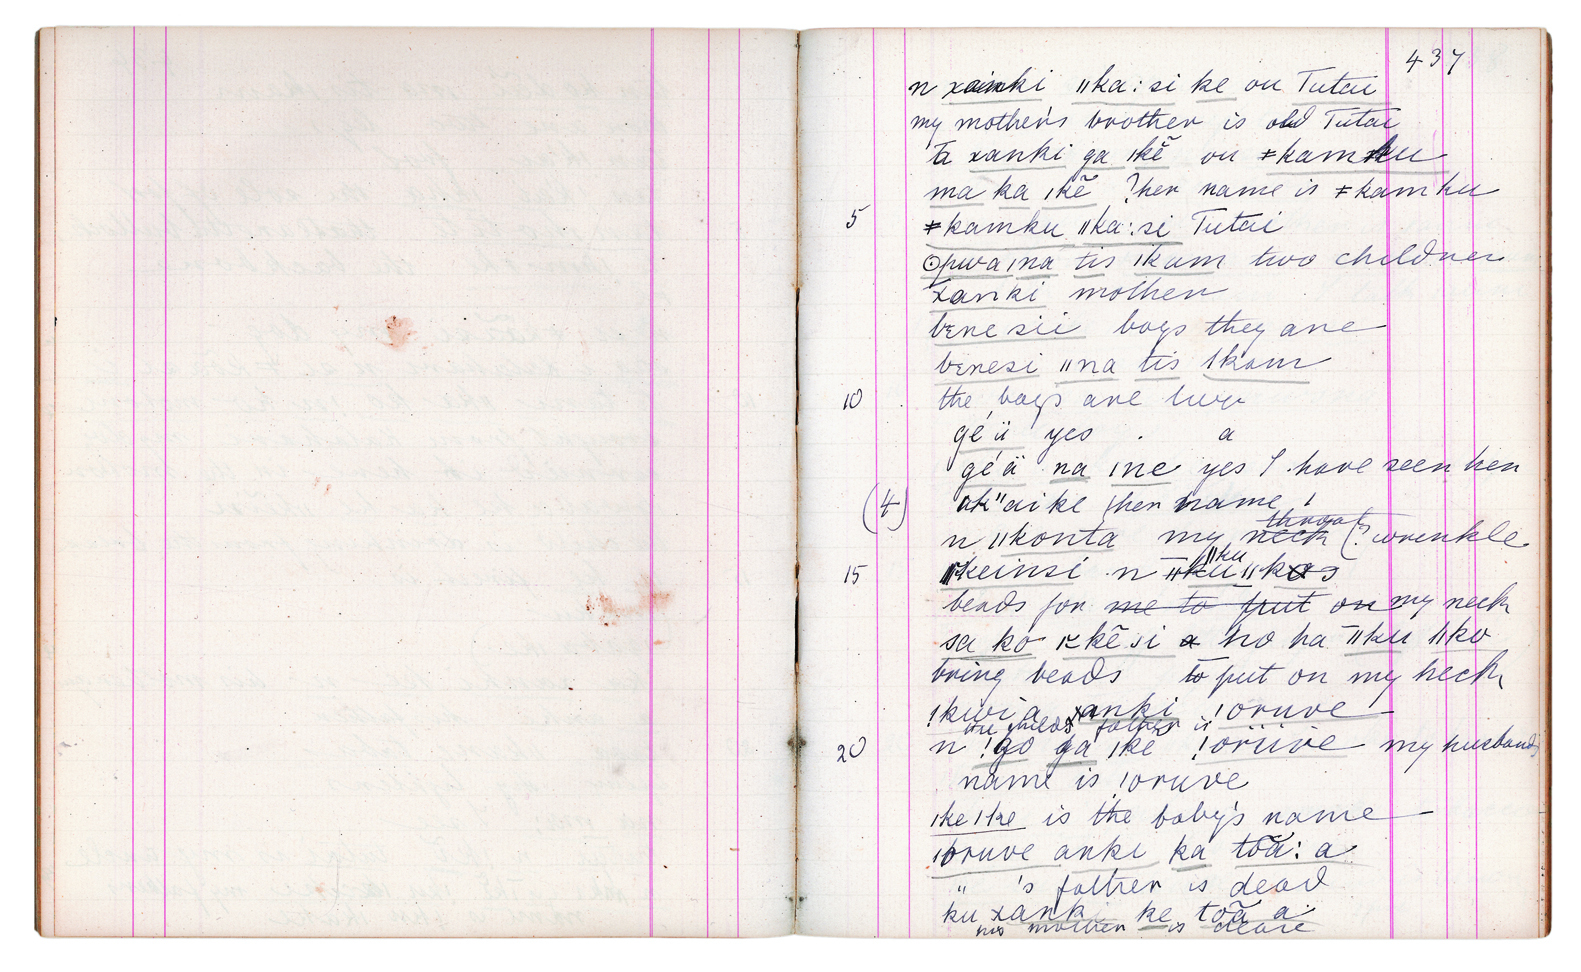 437
n xainki ǁka:si ke ou Tutai
my mother's brother is old Tutai
Ta xanki ga ǀkẽ ou ǂkamku
ma ka ǀkẽ ?her name is ǂkamku
5 ǂkamku ǁka:si Tutai
ʘpwaǀna tis ǀkum two children
xanki mother
bɛnesii boys they are
bɛnesi ǁna tis ǀkam
10 the boys are two
géü yes . a
géä na ǀne yes I have seen her
(4) ok"aike her name !
n ǁkonta my neck throat (? wrinkle
15 ǁkeinsi n ǁku ǁku ǁkos
beads for me to put on my neck
sa ko kẽsi a ho ha ǁku ǁko
bring beads to put on my neck
!kwia xanki !oruve
the child's father is
20 n !go ga ǀke !oriive my husband's
name is !oruve
ǀkeǀke is the baby's name
!oruve anki ka toã: a
" 's father is dead
ku xanki ke toã a
his mother is